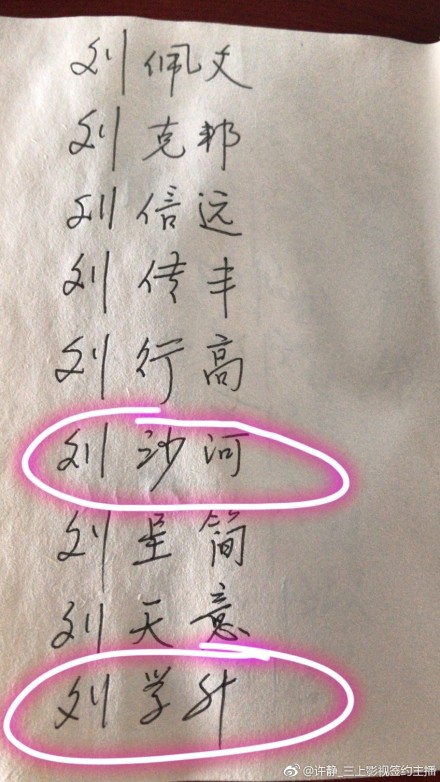 刘佩文
刘克邦
刘信远
刘传丰
刘行高
刘沙河
刘星简
刘天意
刘学升
@许静_三上影视签约主播